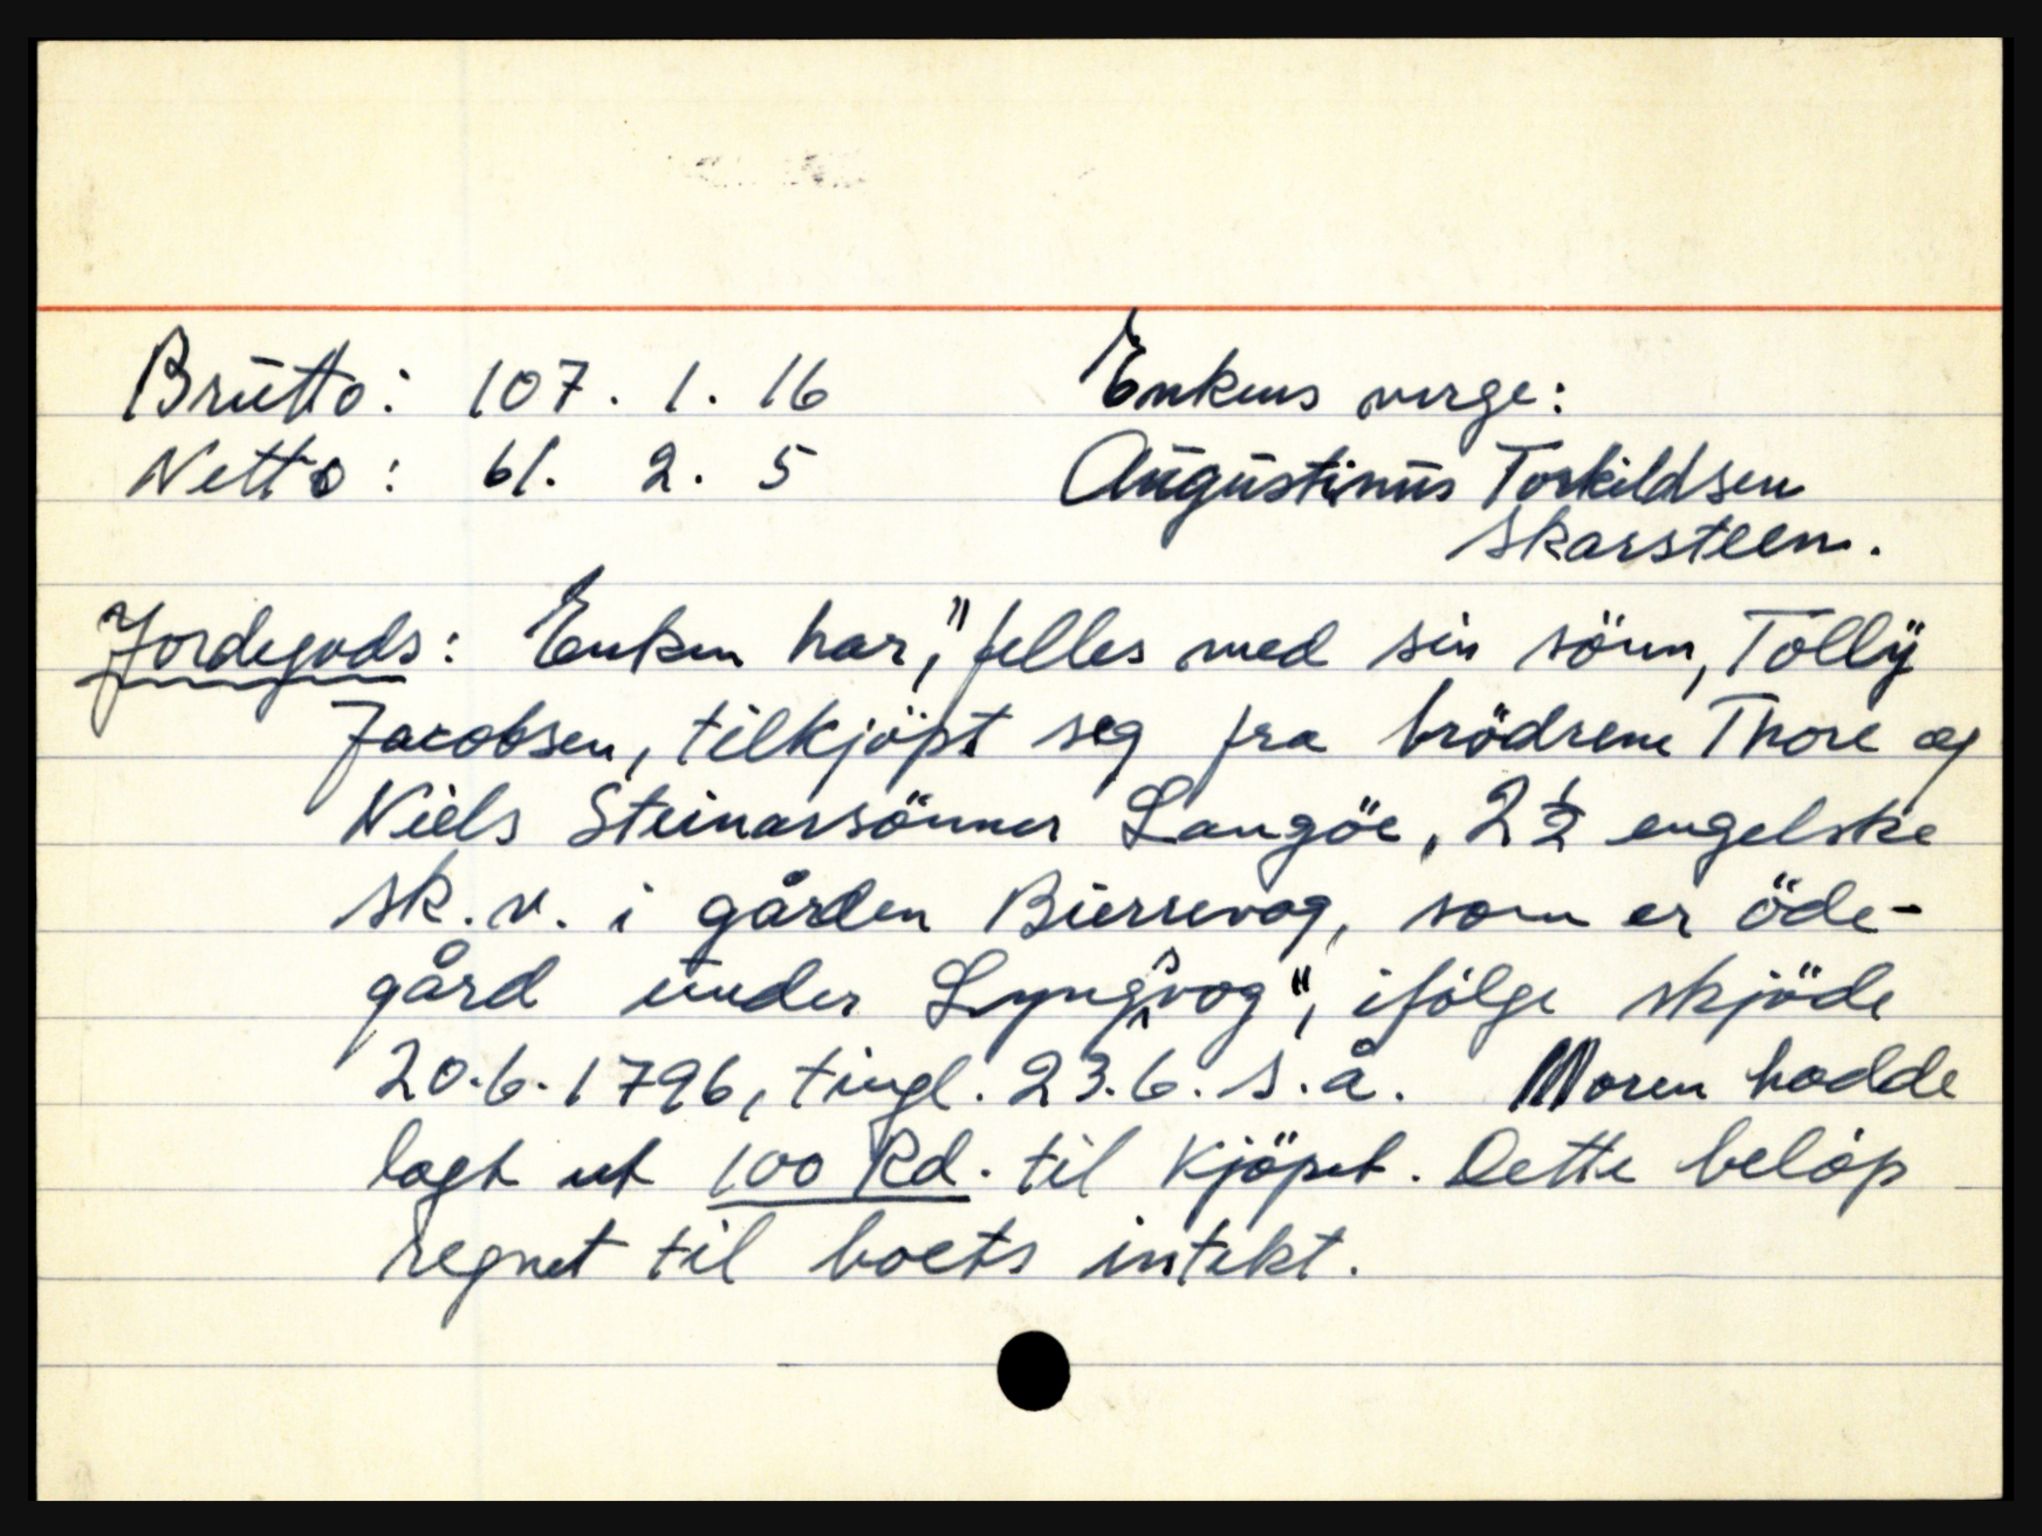 Brutto: 107. 1. 16
Netto: 61. 2. 5
Enkens verge:
Augustinus Torkildsen
Skarsteen.
Jordegods: Enken har, "felles med sin sönn, Tolly
Jacobsen, tilkjöpt seg fra brödrene Thore og
Niels Steinarsönner Langöe, 2 1/2 engelske
sk. v. i gården Bierrevog, som er öde-
gård under Lyngsvog", ifölge skjöde
20.6.1796, tingl. 23.6. s.å. Moren hadde
lagt ut 100 Rd. til kjöpet. Dette belöp
regnet til boets intekt.